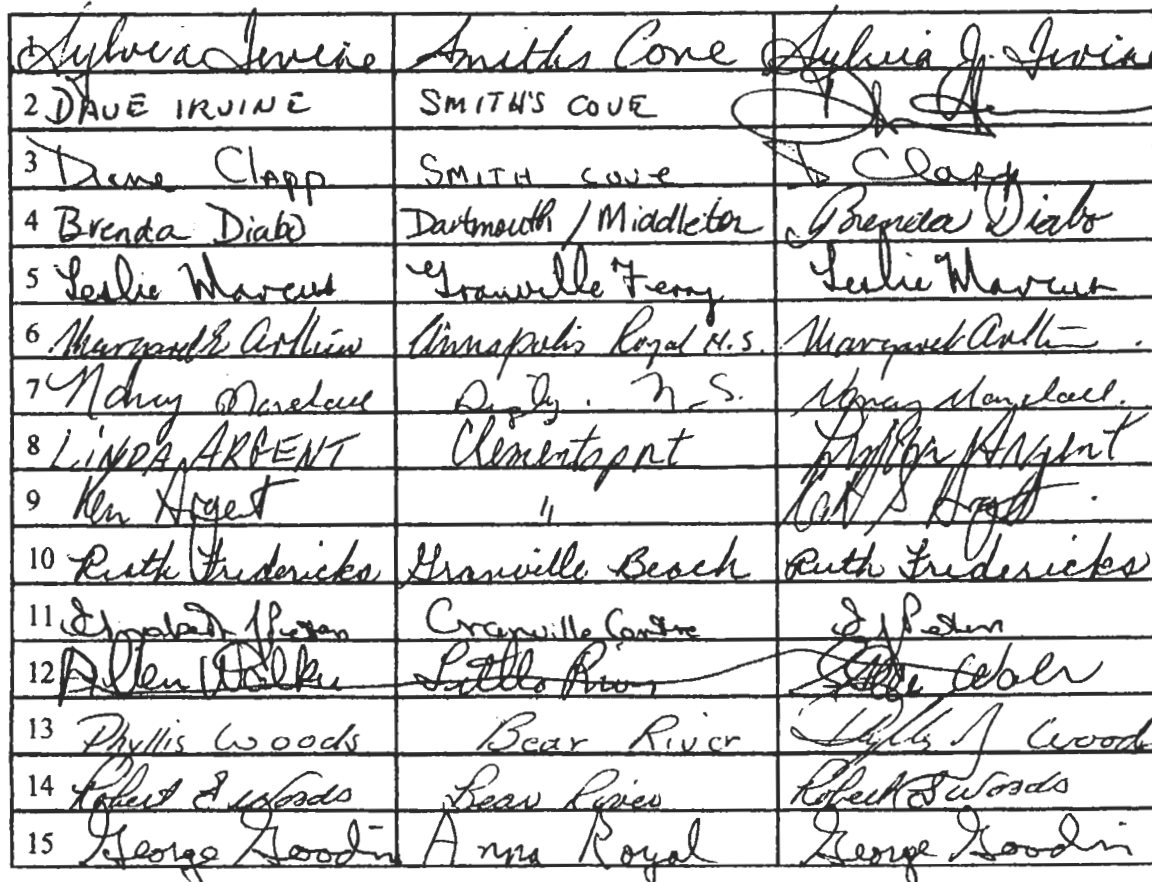 1 Sylvia Irvine Smiths Cove Sylvia J. Irvine
2 DAVE IRVINE SMITH'S COVE
3 Diane Clapp SMITH COVE D Clapp
4 Brenda Diabo Dartmouth / Middleton Brenda Diabo
5 Leslie Marcus Granville Ferry Leslie Marcus
6 Margaret E Annapolis Royal N.S. Margaret
7 Nancy Digby. N.S. Nancy
8 LINDA ARGENT Clementsport Argent
9 Ken Argent "
10 Ruth Fredericks Granville Beach Ruth Fredericks
11 Elizabeth Granville Centre
12 Allen Little River
13 Phyllis Woods Bear River Woods
14 Robert E Woods Bear River Robert E Woods
15 George Goodin Anna Royal George Goodin